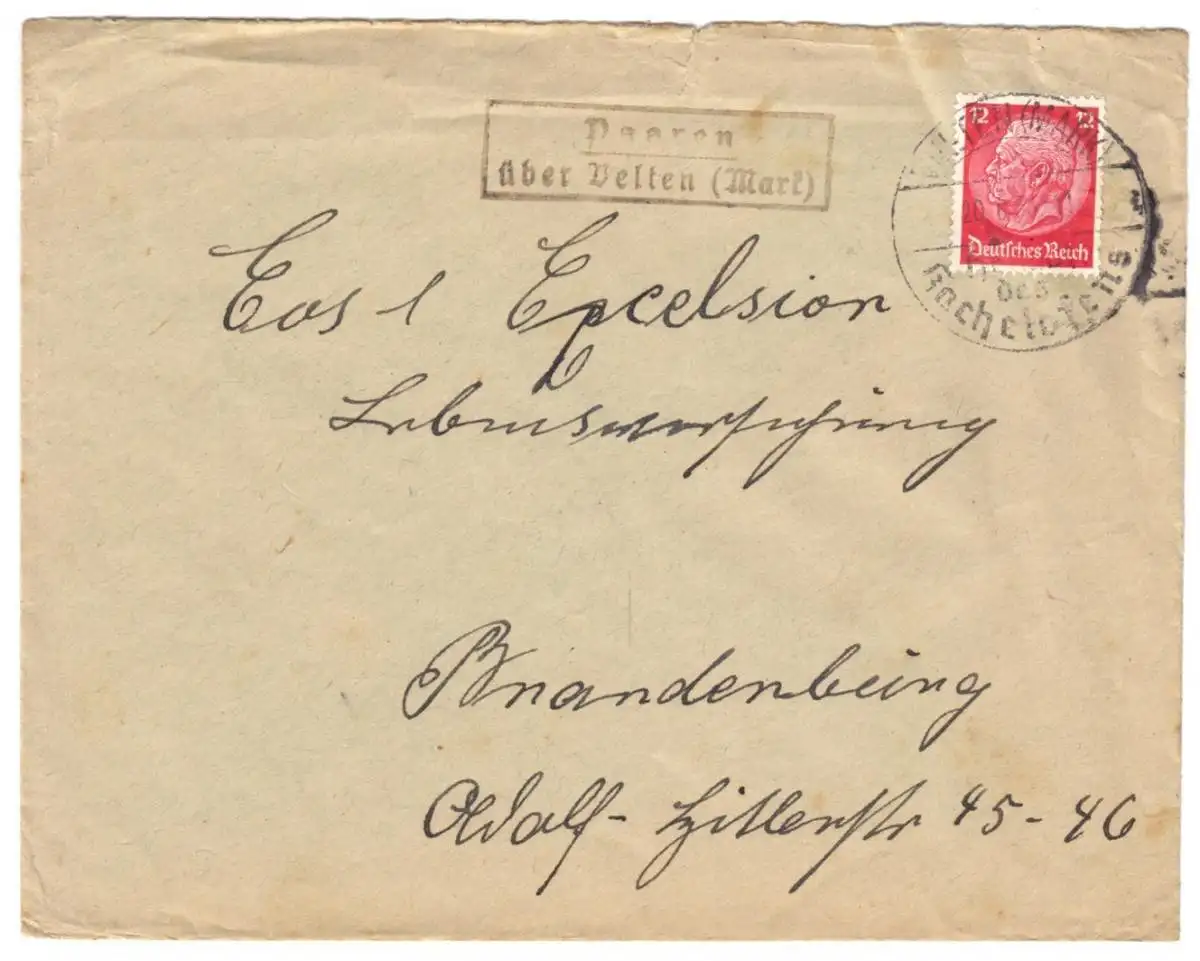 Paaren
über Velten (Mark)
12 12
Deutsches Reich
VELTEN (MARK)
des
Kachelofens
Eos Excelsior
Lebensversicherung
Brandenburg
Adolf-Hitlerstr 45-46